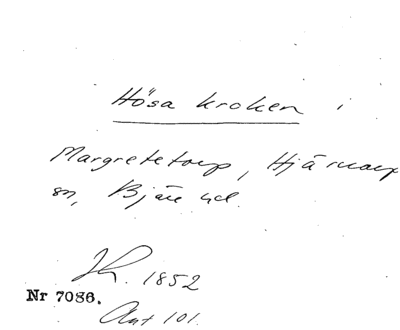 Hösa kroken i
Margretetorp, Hjärnarp
sn, Bjäre hd.
1852
Nr 7086.
Ant 101.